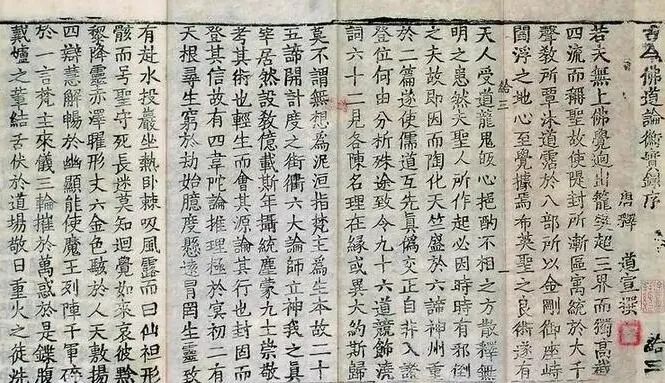 古今佛道論衡實錄序
唐釋 道宣撰
若夫無上佛覺迥出籠樊超三界而獨高越
四流而稱聖故使隄封所漸區寓統於大千
聲教所覃沐道霑於八部所以金剛御座峙
閻浮之地心至覺據焉布英聖之良術遂有
天人受道龍鬼皈心挹酌不相之方散釋無
給三
明之患然夫聖人所作起必因時時有邪倒
之夫故即因而陶化天竺盛於六諦神州重
於二篇遂使儒道互先真偽交正自非入證
登位何由分析殊途致令九十六道競飾澆
詞六十二見各陳名理在緣或異大約斯歸
莫不謂無想為泥洹指梵主為生本故二十
五諦開計度之街衢六大論師立神我之真
宰居然設教億載斯年攝統塵蒙九土崇敬
考其術也輕生而會其源論其行也封固而
登其信故有四韋陀論推理極於冥初二有
天根尋生窮於劫始臆度懸遠冒罔生靈致
有赴水投巖坐熱臥棘吸風露而曰仙袒形
骸而号聖守死長迷莫知迴覺如來哀彼黔
黎降靈赤澤曜形丈六金色駭於人天敷揚
四辯慧解暢於幽顯能使魔王列陣千軍碎
於一言梵主來儀三輪摧於萬惑於是鍱腹
戴爐之輩結舌伏於道場敬日重火之徒洗